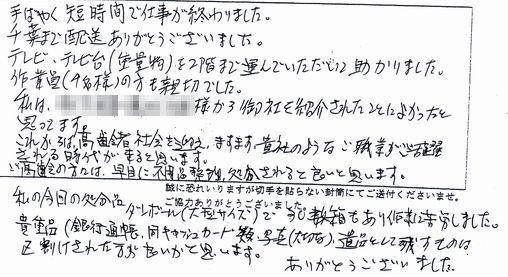 手ばやく短時間で仕事が終わりました。
千葉まで配送ありがとうございました。
テレビ、テレビ台(重量物)を2階まで運んでいただいて助かりました。
作業員(4名様)の方も親切でした。
私は、 様から御社を紹介されたことによかったと
思ってます。
これからは、高齢者社会を迎え、ますます貴社のようなご職業が活躍
される時代が来ると思います。
ご高齢の方には、早目に不用品整理、処分されると良いと思います。
誠に恐れいりますが切手を貼らない封筒にてご送付くださいませ。
ご協力ありがとうございました。
私の今日の処分品 ダンボール(大型サイズ)で 数箱もあり作業に苦労しました。
貴重品(銀行通帳、同キャッシュカード 写真(大切な)、遺品として残すものは
区別けされた方が良いかと思います。
ありがとうございました